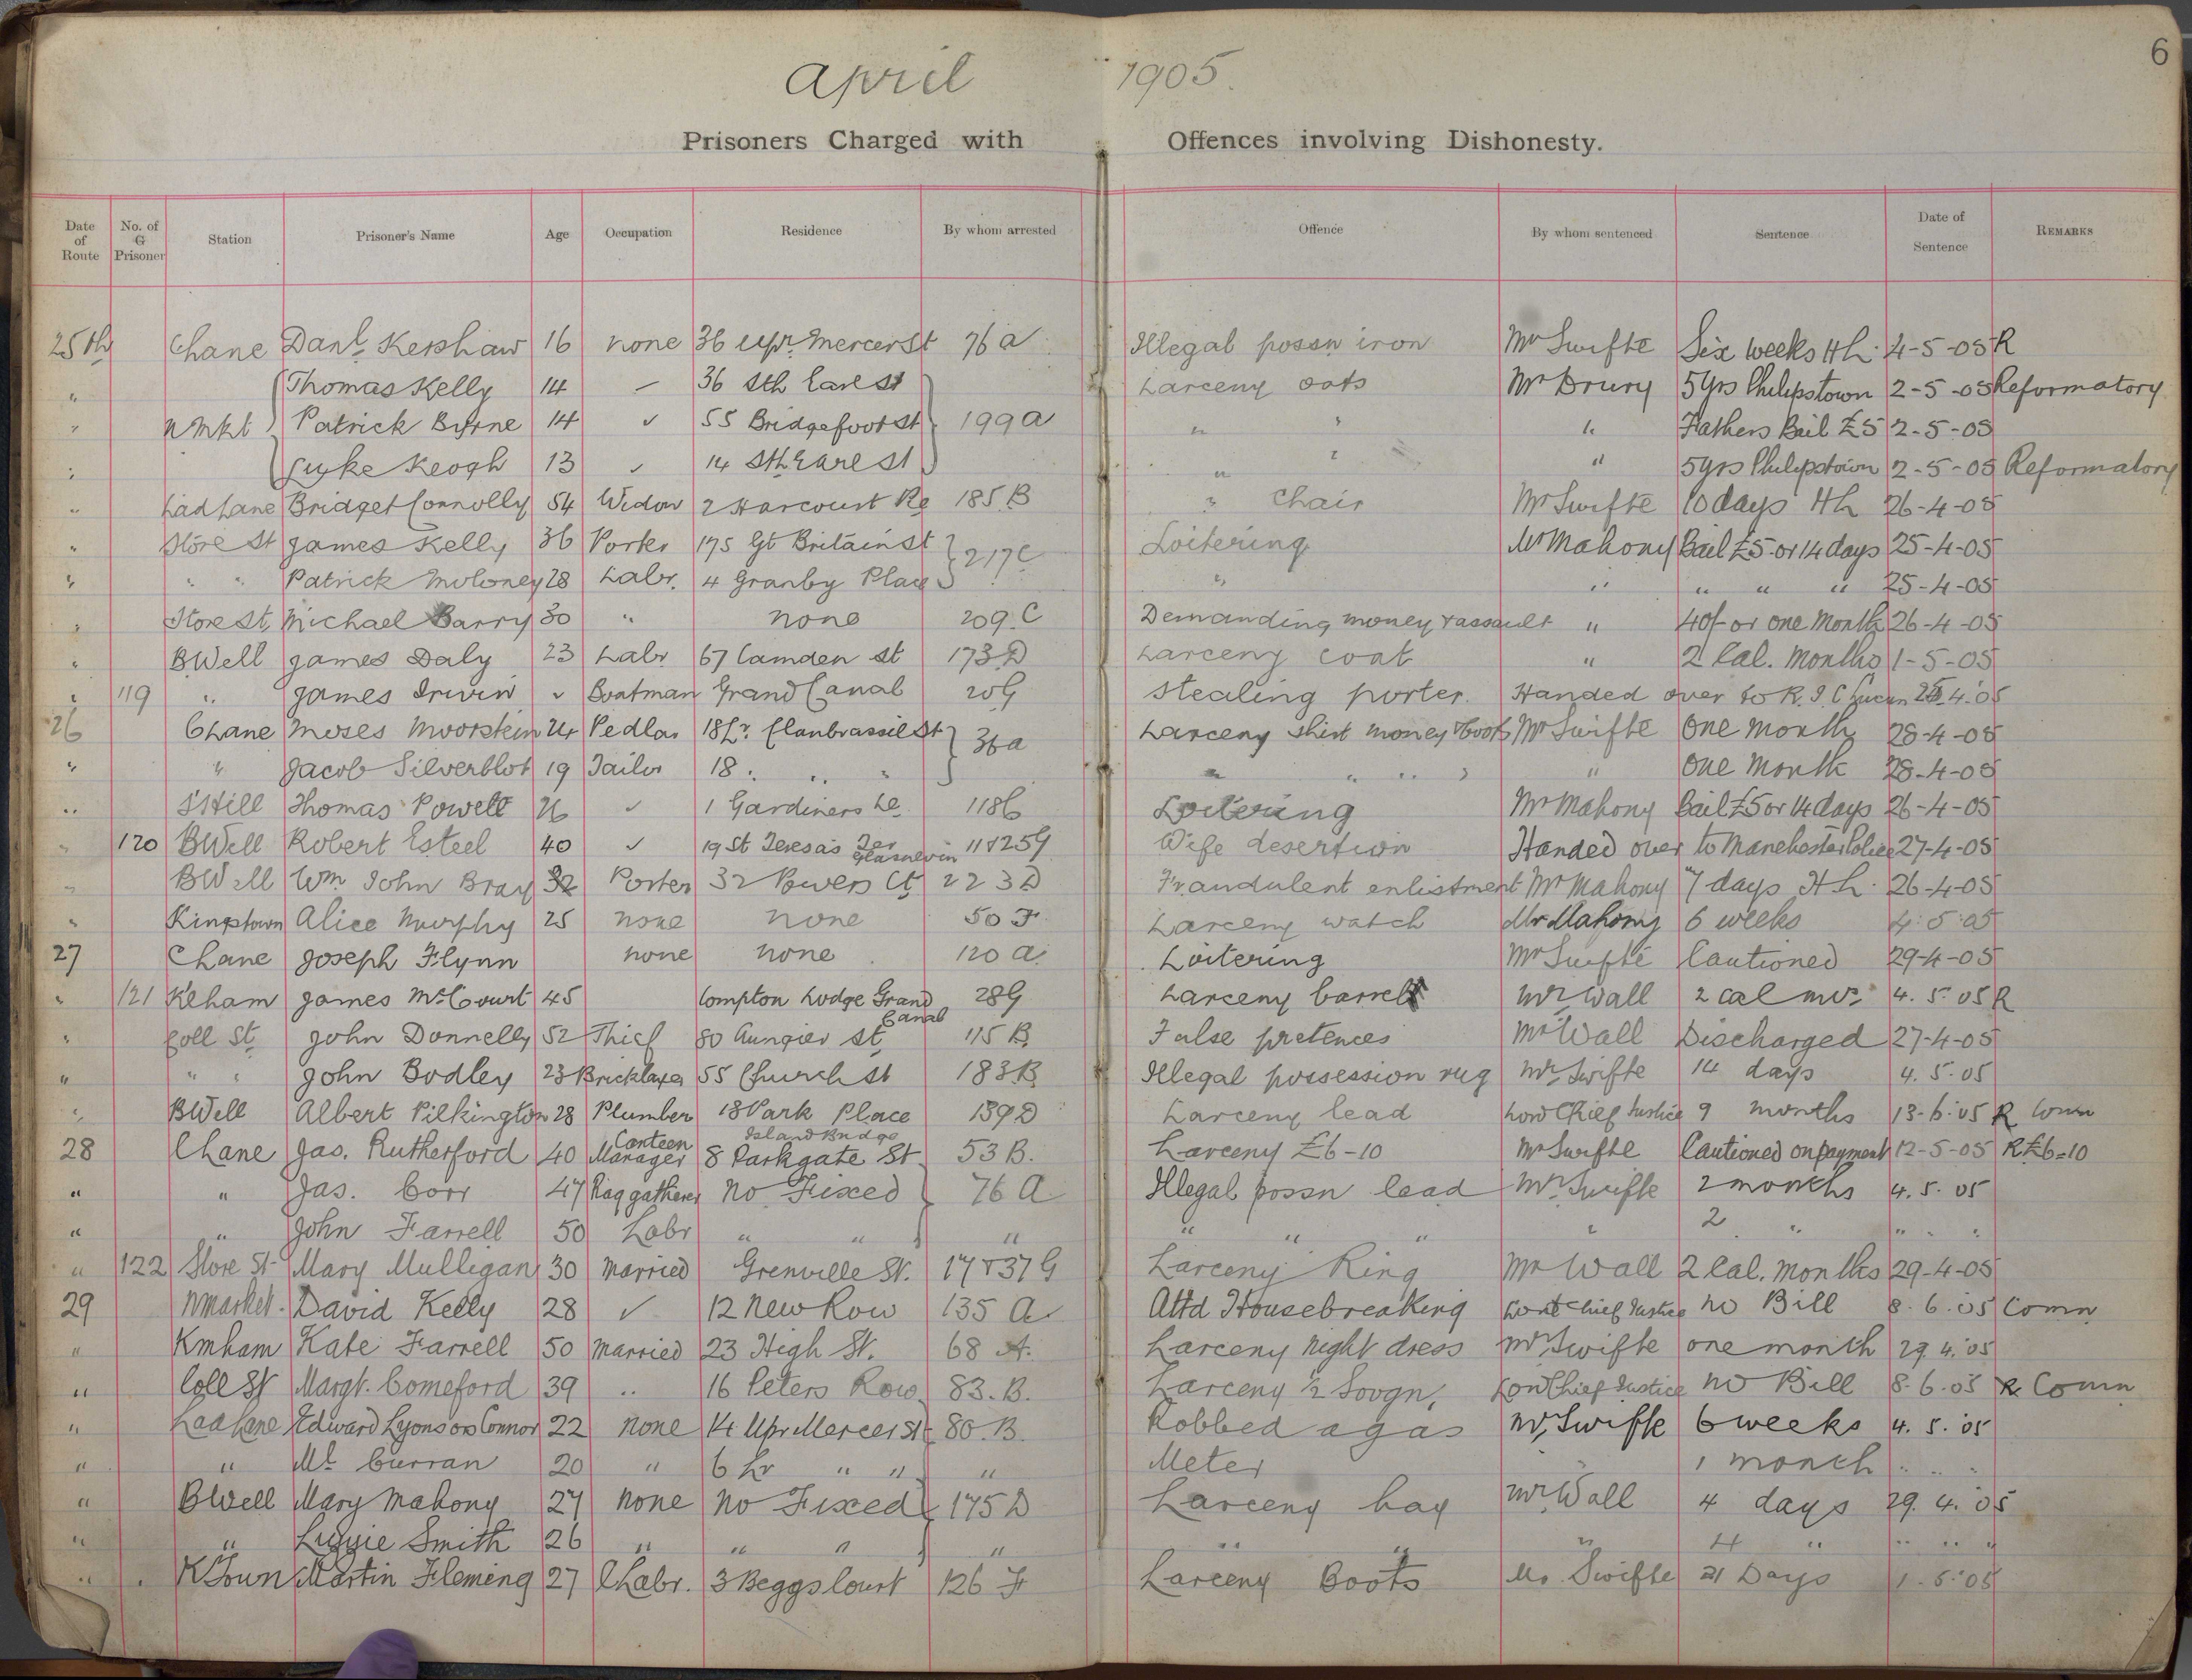 6
April 1905.
Prisoners Charged with Offences involving Dishonesty.
Date of Route No. of G Prisoner Station Prisoner's Name Age Occupation Residence By whom arrested Offence By whom sentenced Sentence Date of Sentence Remarks
25th Chane Danl. Kershaw 16 none 36 Upr. Mercer St 76 A Illegal possn iron Mr Swifte Six weeks H L. 4-5-05 R
" Thomas Kelly 14 – 36 Sth Earl St Larceny oats Mr Drury 5 yrs Philipstown 2-5-05 Reformatory
" N Mkt Patrick Byrne 14 ✓ 55 Bridgefoot St 199 A " " " Fathers Bail £5 2-5-05
" Luke Keogh 13 ✓ 14 Sth Earl St " " " 5 yrs Philipstown 2-5-05 Reformatory
" Lad Lane Bridget Connolly 54 Widow 2 Harcourt 185 B " Chair Mr Swifte 10 days H L 26-4-05
" Store St James Kelly 36 Porter 175 Gt Britain St 217 C Loitering Mr Mahony Bail £5 or 14 days 25-4-05
" " " Patrick Moloney 28 Labr. 4 Granby Place " " " " " 25-4-05
" Store St. Michael Barry 30 " none 209. C Demanding money & assault " 40/- or one Month 26-4-05
" B Well James Daly 23 Labr 67 Camden St 173 D Larceny coat " 2 Cal. Months 1-5-05
" 119 " James Irwin ✓ Boatman Grand Canal 20 G Stealing porter Handed over to R. I. C Lucan 4.'05
26 C Lane Moses Moorstein 24 Pedlar 18 Lr. Clanbrassil St 36 A Larceny shirt money & boots Mr Swifte One Month 28-4-05
" " Jacob Silverblot 19 Tailor 18 " " " " " " " One Month 28-4-05
" S Hill Thomas Powell 26 ✓ 1 Gardiners Le. 118 C Loitering Mr Mahony Bail £5 or 14 days 26-4-05
" 120 B Well Robert Esteel 40 ✓ 19 St Teresa's Ter Glasnevin 11 & 25 G Wife desertion Handed over to Manchester Police 27-4-05
" B Well Wm John Bray 32 Porter 32 Powers Ct 223 D Fraudulent enlistment Mr Mahony 7 days H L. 26-4-05
" Kingstown Alice Murphy 25 none none 50 F Larceny watch Mr Mahony 6 weeks 4:5:05
27 C Lane Joseph Flynn none none 120 A Loitering Mr Swifte Cautioned 29-4-05
" 121 K'ham James McCourt 45 Compton Lodge Grand Canal 28 G Larceny barrel Mr Wall 2 cal mos. 4. 5. 05 R
" Coll St. John Donnelly 52 Thief 80 Aungier St. 115 B False pretences Mr Wall Discharged 27-4-05
" " " John Bodley 23 Bricklayer 55 Church St 183 B Illegal possession rug Mr Swifte 14 days 4. 5. 05
" B Well Albert Pilkington 28 Plumber 18 Park Place Island Bridge 139 D Larceny lead Lord Chief Justice 9 months 13.6.'05 R Comn
28 C Lane Jas. Rutherford 40 Canteen Manager 8 Parkgate St 53 B. Larceny £6-10 Mr Swifte Cautioned on payment 12-5-05 R £6=10
" " Jas. Corr 47 Rag gatherer No Fixed 76 A Illegal possn lead Mr Swifte 2 months 4. 5. 05
" " John Farrell 50 Labr " " " " " " " 2 " " " "
" 122 Store St Mary Mulligan 30 Married Grenville St. 17 & 37 G Larceny Ring Mr Wall 2 Cal. Months 29-4-05
29 N market David Kelly 28 ✓ 12 New Row 135 A Attd Housebreaking Lord Chief Justice No Bill 8. 6. 05 Comn
" Kmham Kate Farrell 50 Married 23 High St. 68 A. Larceny night dress Mr Swifte one month 29. 4. '05
" Coll St Margt. Comeford 39 " 16 Peters Row 83. B. Larceny ½ Sovgn, Lord Chief Justice No Bill 8. 6. 05 R Comn
" Lad Lane Edward Lyons or Connor 22 none 14 Upr Mercer St 80. B. Robbed a gas Mr Swifte 6 weeks 4. 5. 05
" " Ml. Curran 20 " 6 Lr " " " Meter 1 month " " "
" B Well Mary Mahony 27 none No Fixed 175 D Larceny hay Mr Wall 4 days 29. 4. '05
" " Lizzie Smith 26 " " " " " " " 4 " " " "
" K Town Martin Fleming 27 C Labr. 3 Beggs Court 126 F Larceny Boots Mr. Swifte 21 Days 1. 5. 05